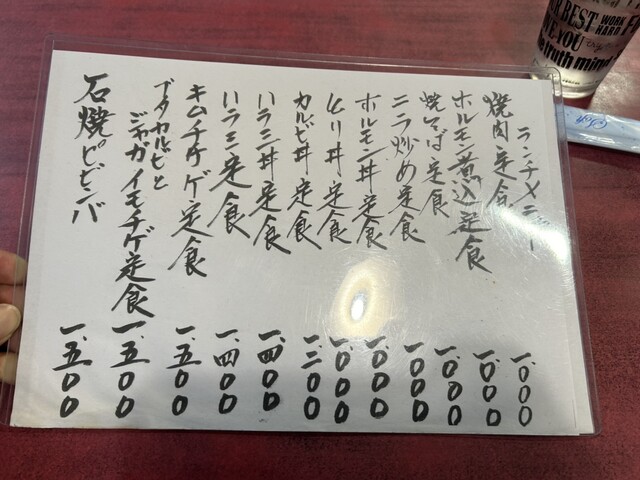 ランチメニュー
焼肉定食 一.000
ホルモン煮込定食 一.000
焼そば定食 一.000
ニラ炒め定食 一.000
ホルモン丼定食 一.000
とり丼定食 一.000
カルビ丼定食 一.二00
ハラミ丼定食 一.400
ハラミ定食 一.400
キムチチゲ定食 一.五00
ブタカルビと
ジャガイモチゲ定食 一.五00
石焼ピビンバ 一.五00
BEST
WORK
HARD
YOU
truth mind